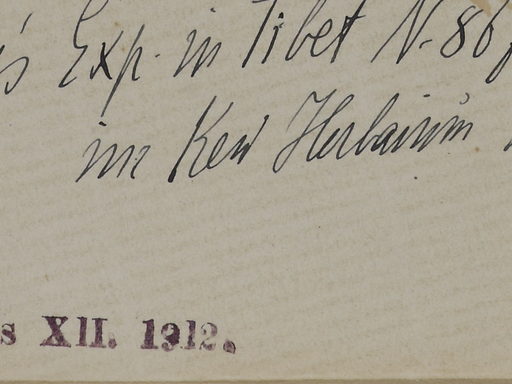 's Exp. in Tibet N. 86
im Kew Herbarium
s XII. 1912.